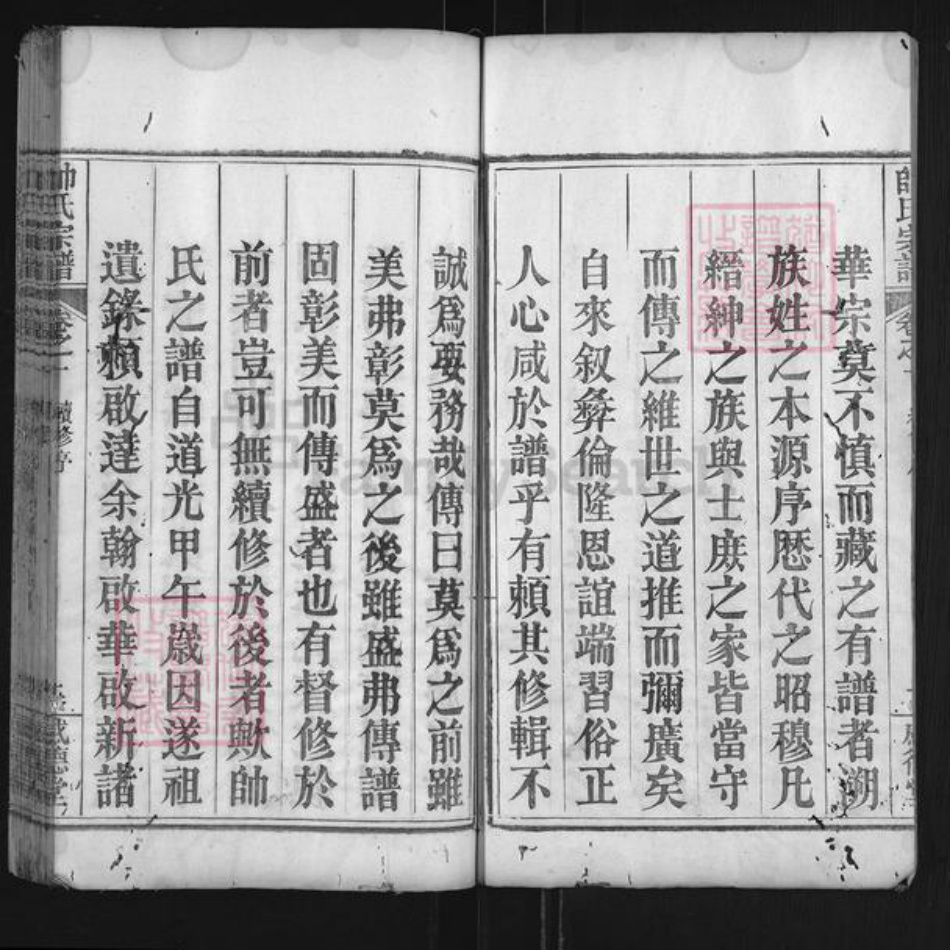 華宗莫不慎而藏之有譜者溯
族姓之本源序歷代之昭穆凡
縉紳之族與士庶之家皆當守
而傳之維世之道推而彌廣矣
自來叙彝倫隆恩誼端習俗正
人心咸於譜乎有賴其修輯不
誠爲要務哉傳曰莫爲之前雖
美弗彰莫爲之後雖盛弗傳譜
固彰美而傳盛者也有督修於
前者豈可無續修於後者歟帥
氏之譜自道光甲午歲因遂祖
遺錄賴啟達余翰啟華啟新諸
帥氏宗譜
卷之一
續修序
FamilySearch